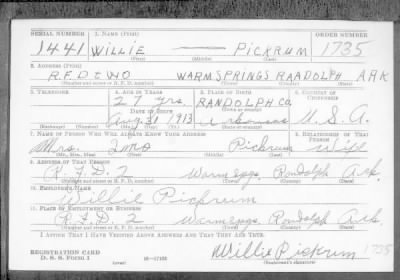 SERIAL NUMBER 1. NAME (Print) ORDER NUMBER
1441 WILLIE — PICKRUM 1735
(First) (Middle) (Last)
2. ADDRESS (Print)
R.F.D TWO WARM SPRINGS RAADOLPH ARK
(Number and street or R. F. D. number) (Town) (County) (State)
3. TELEPHONE 4. AGE IN YEARS 5. PLACE OF BIRTH 6. COUNTRY OF CITIZENSHIP
27 yrs. RANDOLPH CO.
DATE OF BIRTH (Town or county)
Aug. 31 1913 Arkansas U.S.A.
(Exchange) (Number) (Mo.) (Day) (Yr.) (State or country)
7. NAME OF PERSON WHO WILL ALWAYS KNOW YOUR ADDRESS 8. RELATIONSHIP OF THAT PERSON
Mrs. Imo Pickrum wife
(Mr., Mrs., Miss) (First) (Middle) (Last)
9. ADDRESS OF THAT PERSON
R.F.D. 2 Randolph Ark.
(Number and street or R. F. D. number) (Town) (County) (State)
10. EMPLOYER'S NAME
Willie Pickrum
11. PLACE OF EMPLOYMENT OR BUSINESS
R.F.D 2 Randolph Ark.
(Number and street or R. F. D. number) (Town) (County) (State)
I AFFIRM THAT I HAVE VERIFIED ABOVE ANSWERS AND THAT THEY ARE TRUE.
REGISTRATION CARD Willie Pickrum 1735
D. S. S. Form 1 (over) 16—17105 (Registrant's signature)